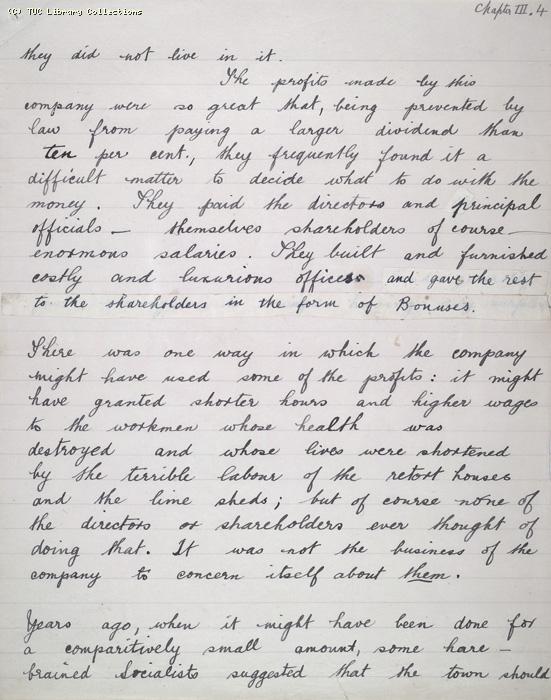 (C) TUC Library Collections
Chapter III. 4
they did not live in it.
The profits made by this
company were so great that, being prevented by
law from paying a larger dividend than
ten per cent., they frequently found it a
difficult matter to decide what to do with the
money. They paid the directors and principal
officials — themselves shareholders of course —
enormous salaries. They built and furnished
costly and luxurious offices and gave the rest
to the shareholders in the form of Bonuses.
There was one way in which the company
might have used some of the profits: it might
have granted shorter hours and higher wages
to the workmen whose health was
destroyed and whose lives were shortened
by the terrible labour of the retort houses
and the lime sheds; but of course none of
the directors or shareholders ever thought of
doing that. It was not the business of the
company to concern itself about them.
Years ago, when it might have been done for
a comparitively small amount, some hare —
brained Socialists suggested that the town should